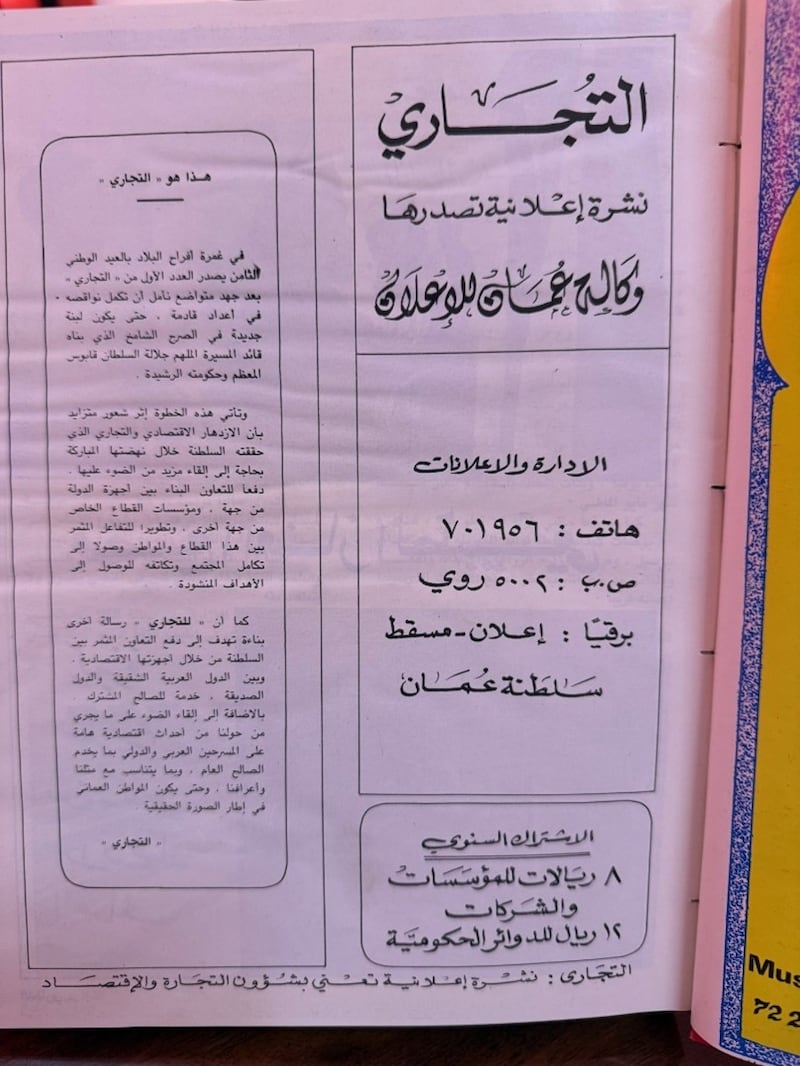 التجاري
نشرة إعلانية تصدرها
وكالة عمان للإعلان
الادارة والاعلانات
هاتف : ٧٠١٩٥٦
ص.ب : ٥٠٠٢ روي
برقيًا : إعلان - مسقط
سلطنة عُمان
الاشتراك السنوي
٨ ريالات للمؤسسات
والشركات
١٢ ريال للدوائر الحكومية
هذا هو « التجاري »
في غمرة أفراح البلاد بالعيد الوطني
الثامن يصدر العدد الأول من « التجاري »
بعد جهد متواضع نأمل أن تكمل نواقصه
في أعداد قادمة ، حتى يكون لبنة
جديدة في الصرح الشامخ الذي بناه
قائد المسيرة الملهم جلالة السلطان قابوس
المعظم وحكومته الرشيدة .
وتأتي هذه الخطوة إثر شعور متزايد
بأن الازدهار الاقتصادي والتجاري الذي
حققته السلطنة خلال نهضتها المباركة
بحاجة إلى إلقاء مزيد من الضوء عليها .
دفعاً للتعاون البناء بين أجهزة الدولة
من جهة ، ومؤسسات القطاع الخاص
من جهة أخرى ، وتطويرا للتفاعل المثمر
بين هذا القطاع والمواطن وصولا إلى
تكامل المجتمع وتكاتفه للوصول إلى
الأهداف المنشودة .
كما أن « للتجاري » رسالة أخرى
بناءة تهدف إلى دفع التعاون المثمر بين
السلطنة من خلال أجهزتها الاقتصادية ،
وبين الدول العربية الشقيقة والدول
الصديقة ، خدمة للصالح المشترك .
بالاضافة إلى إلقاء الضوء على ما يجري
من حولنا من أحداث اقتصادية هامة
على المسرحين العربي والدولي بما يخدم
الصالح العام ، وبما يتناسب مع مثلنا
وأعرافنا ، وحتى يكون المواطن العماني
في إطار الصورة الحقيقية .
« التجاري »
التجاري : نشرة إعلانية تعني بشؤون التجارة والإقتصاد
Mus
72 2